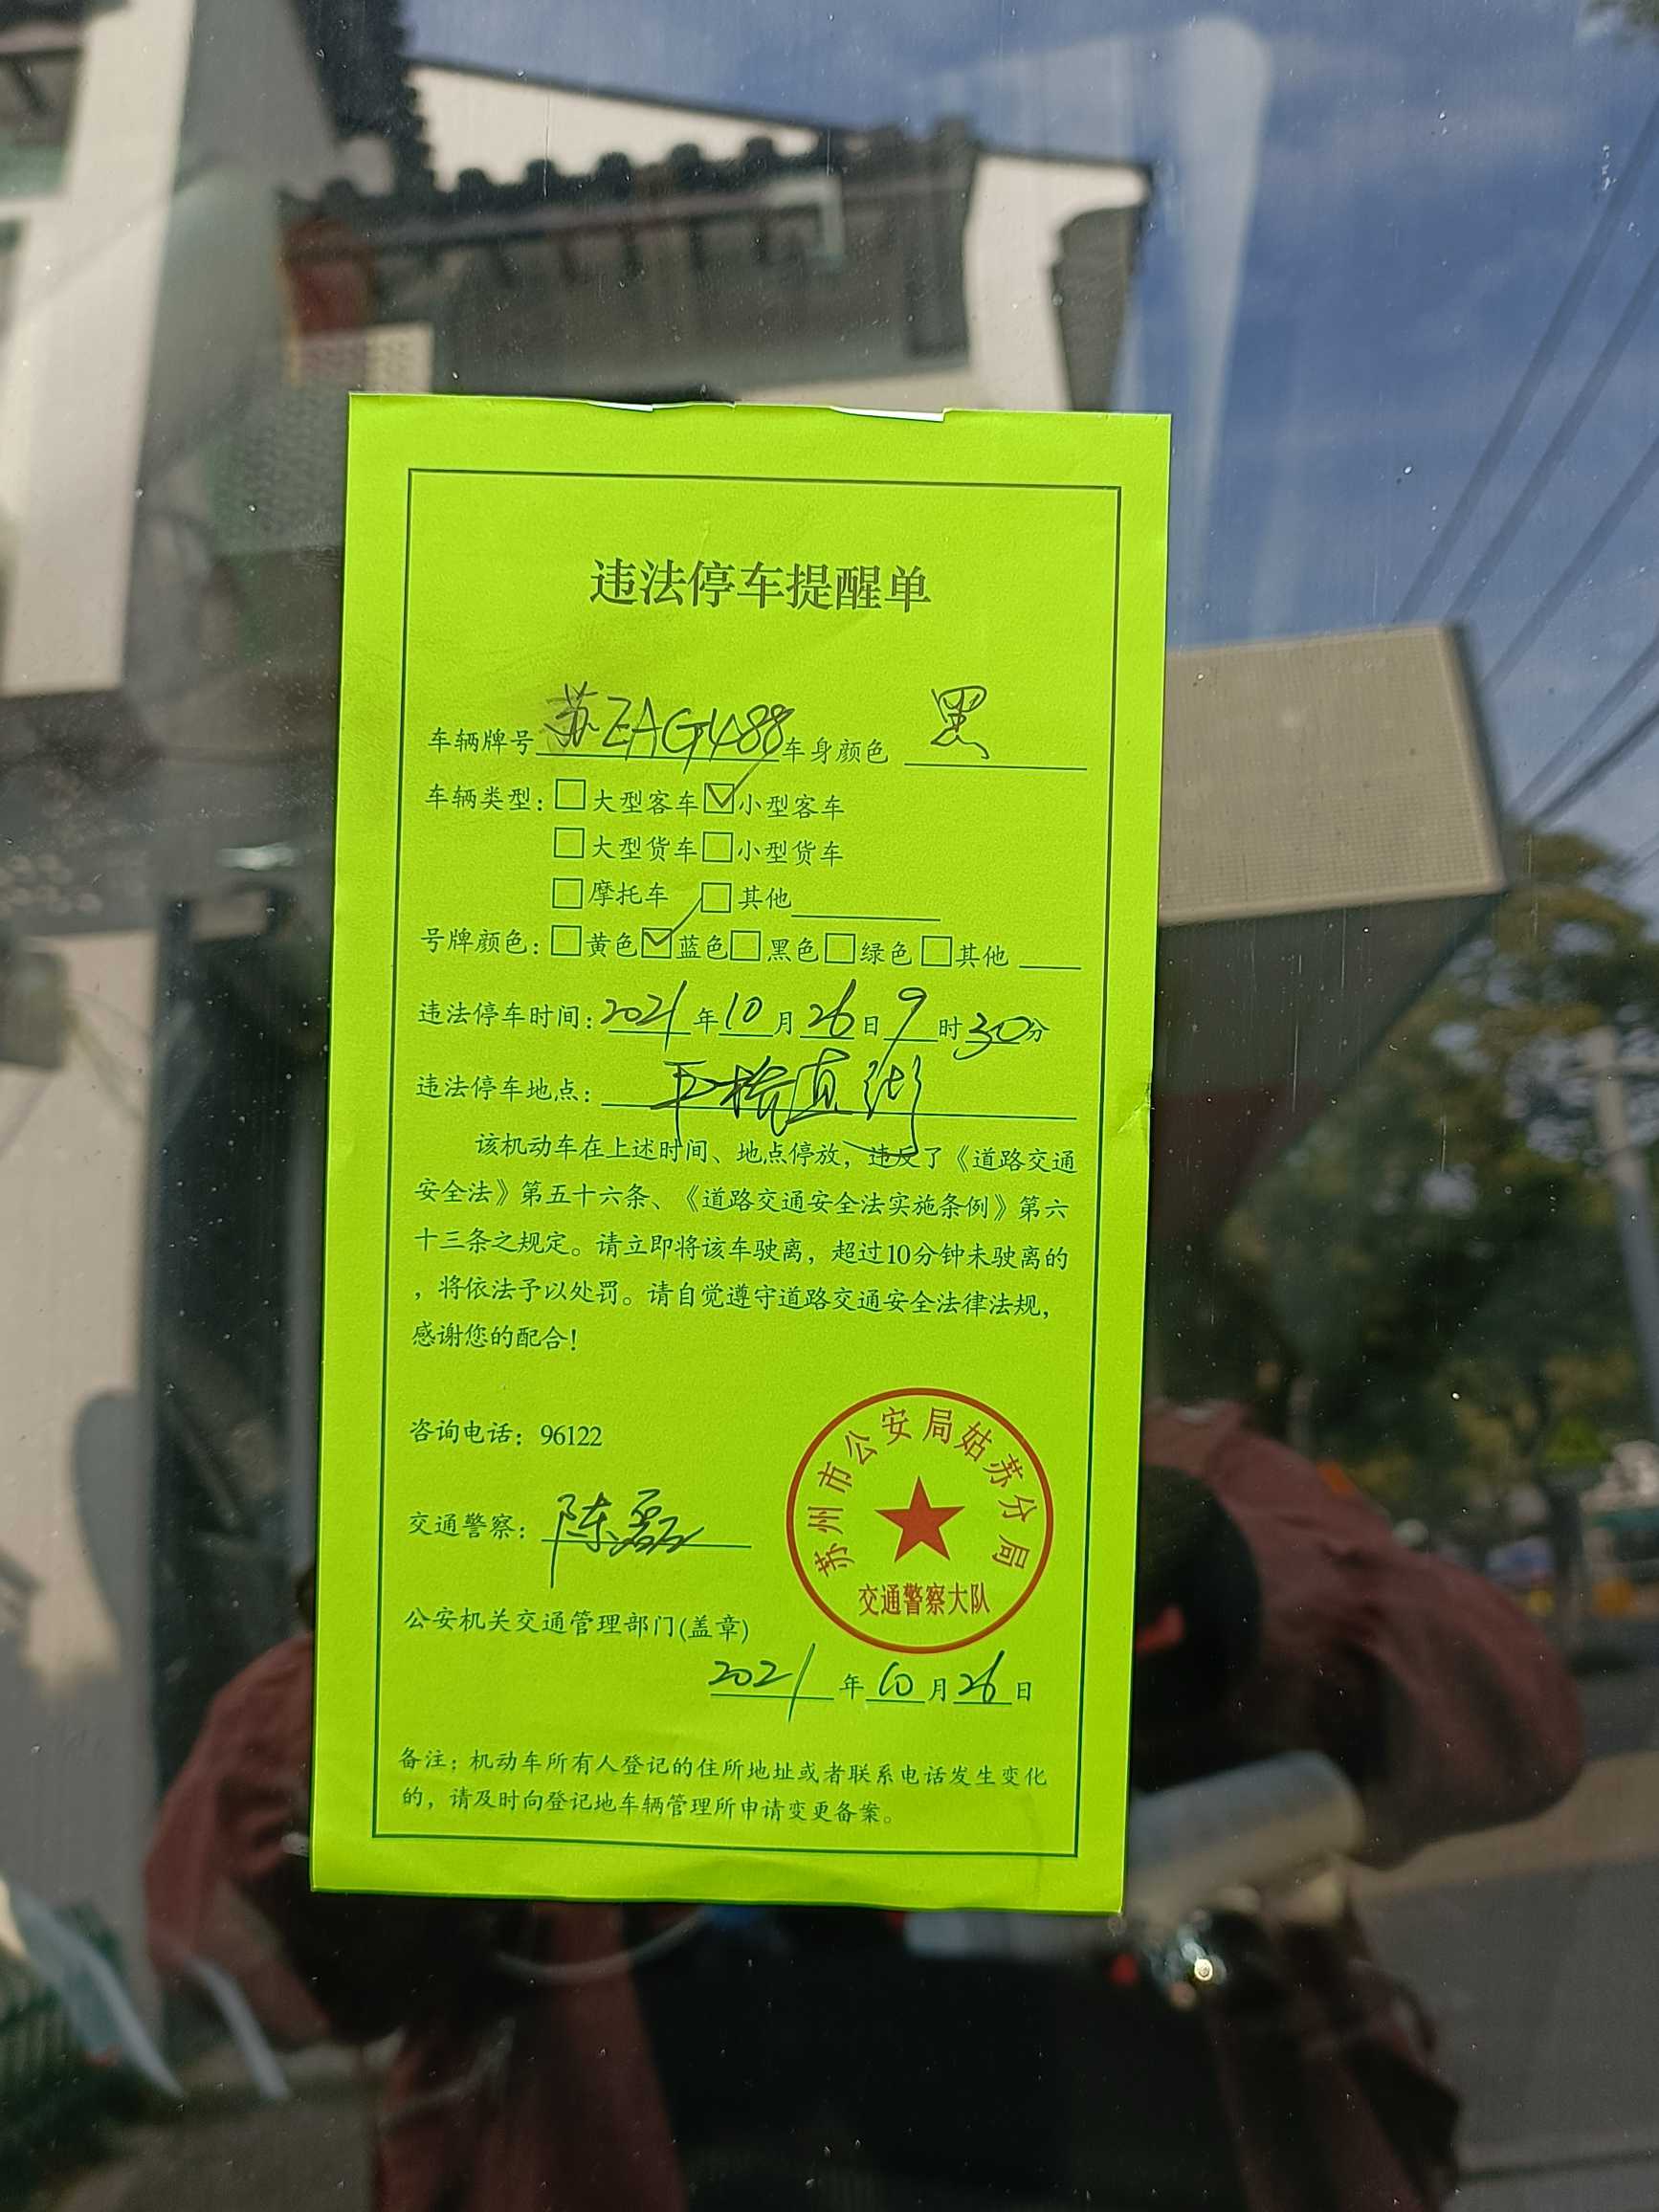 违法停车提醒单
车辆牌号 苏EAG488 车身颜色 黑
车辆类型：□大型客车☑小型客车
□大型货车□小型货车
□摩托车 □其他
号牌颜色：□黄色☑蓝色□黑色□绿色□其他
违法停车时间：2021年10月26日9时30分
违法停车地点：直街
该机动车在上述时间、地点停放，违反了《道路交通
安全法》第五十六条、《道路交通安全法实施条例》第六
十三条之规定。请立即将该车驶离，超过10分钟未驶离的
，将依法予以处罚。请自觉遵守道路交通安全法律法规，
感谢您的配合！
咨询电话：96122
交通警察：陈磊
苏州市公安局姑苏分局
交通警察大队
公安机关交通管理部门(盖章)
2021年10月26日
备注：机动车所有人登记的住所地址或者联系电话发生变化
的，请及时向登记地车辆管理所申请变更备案。